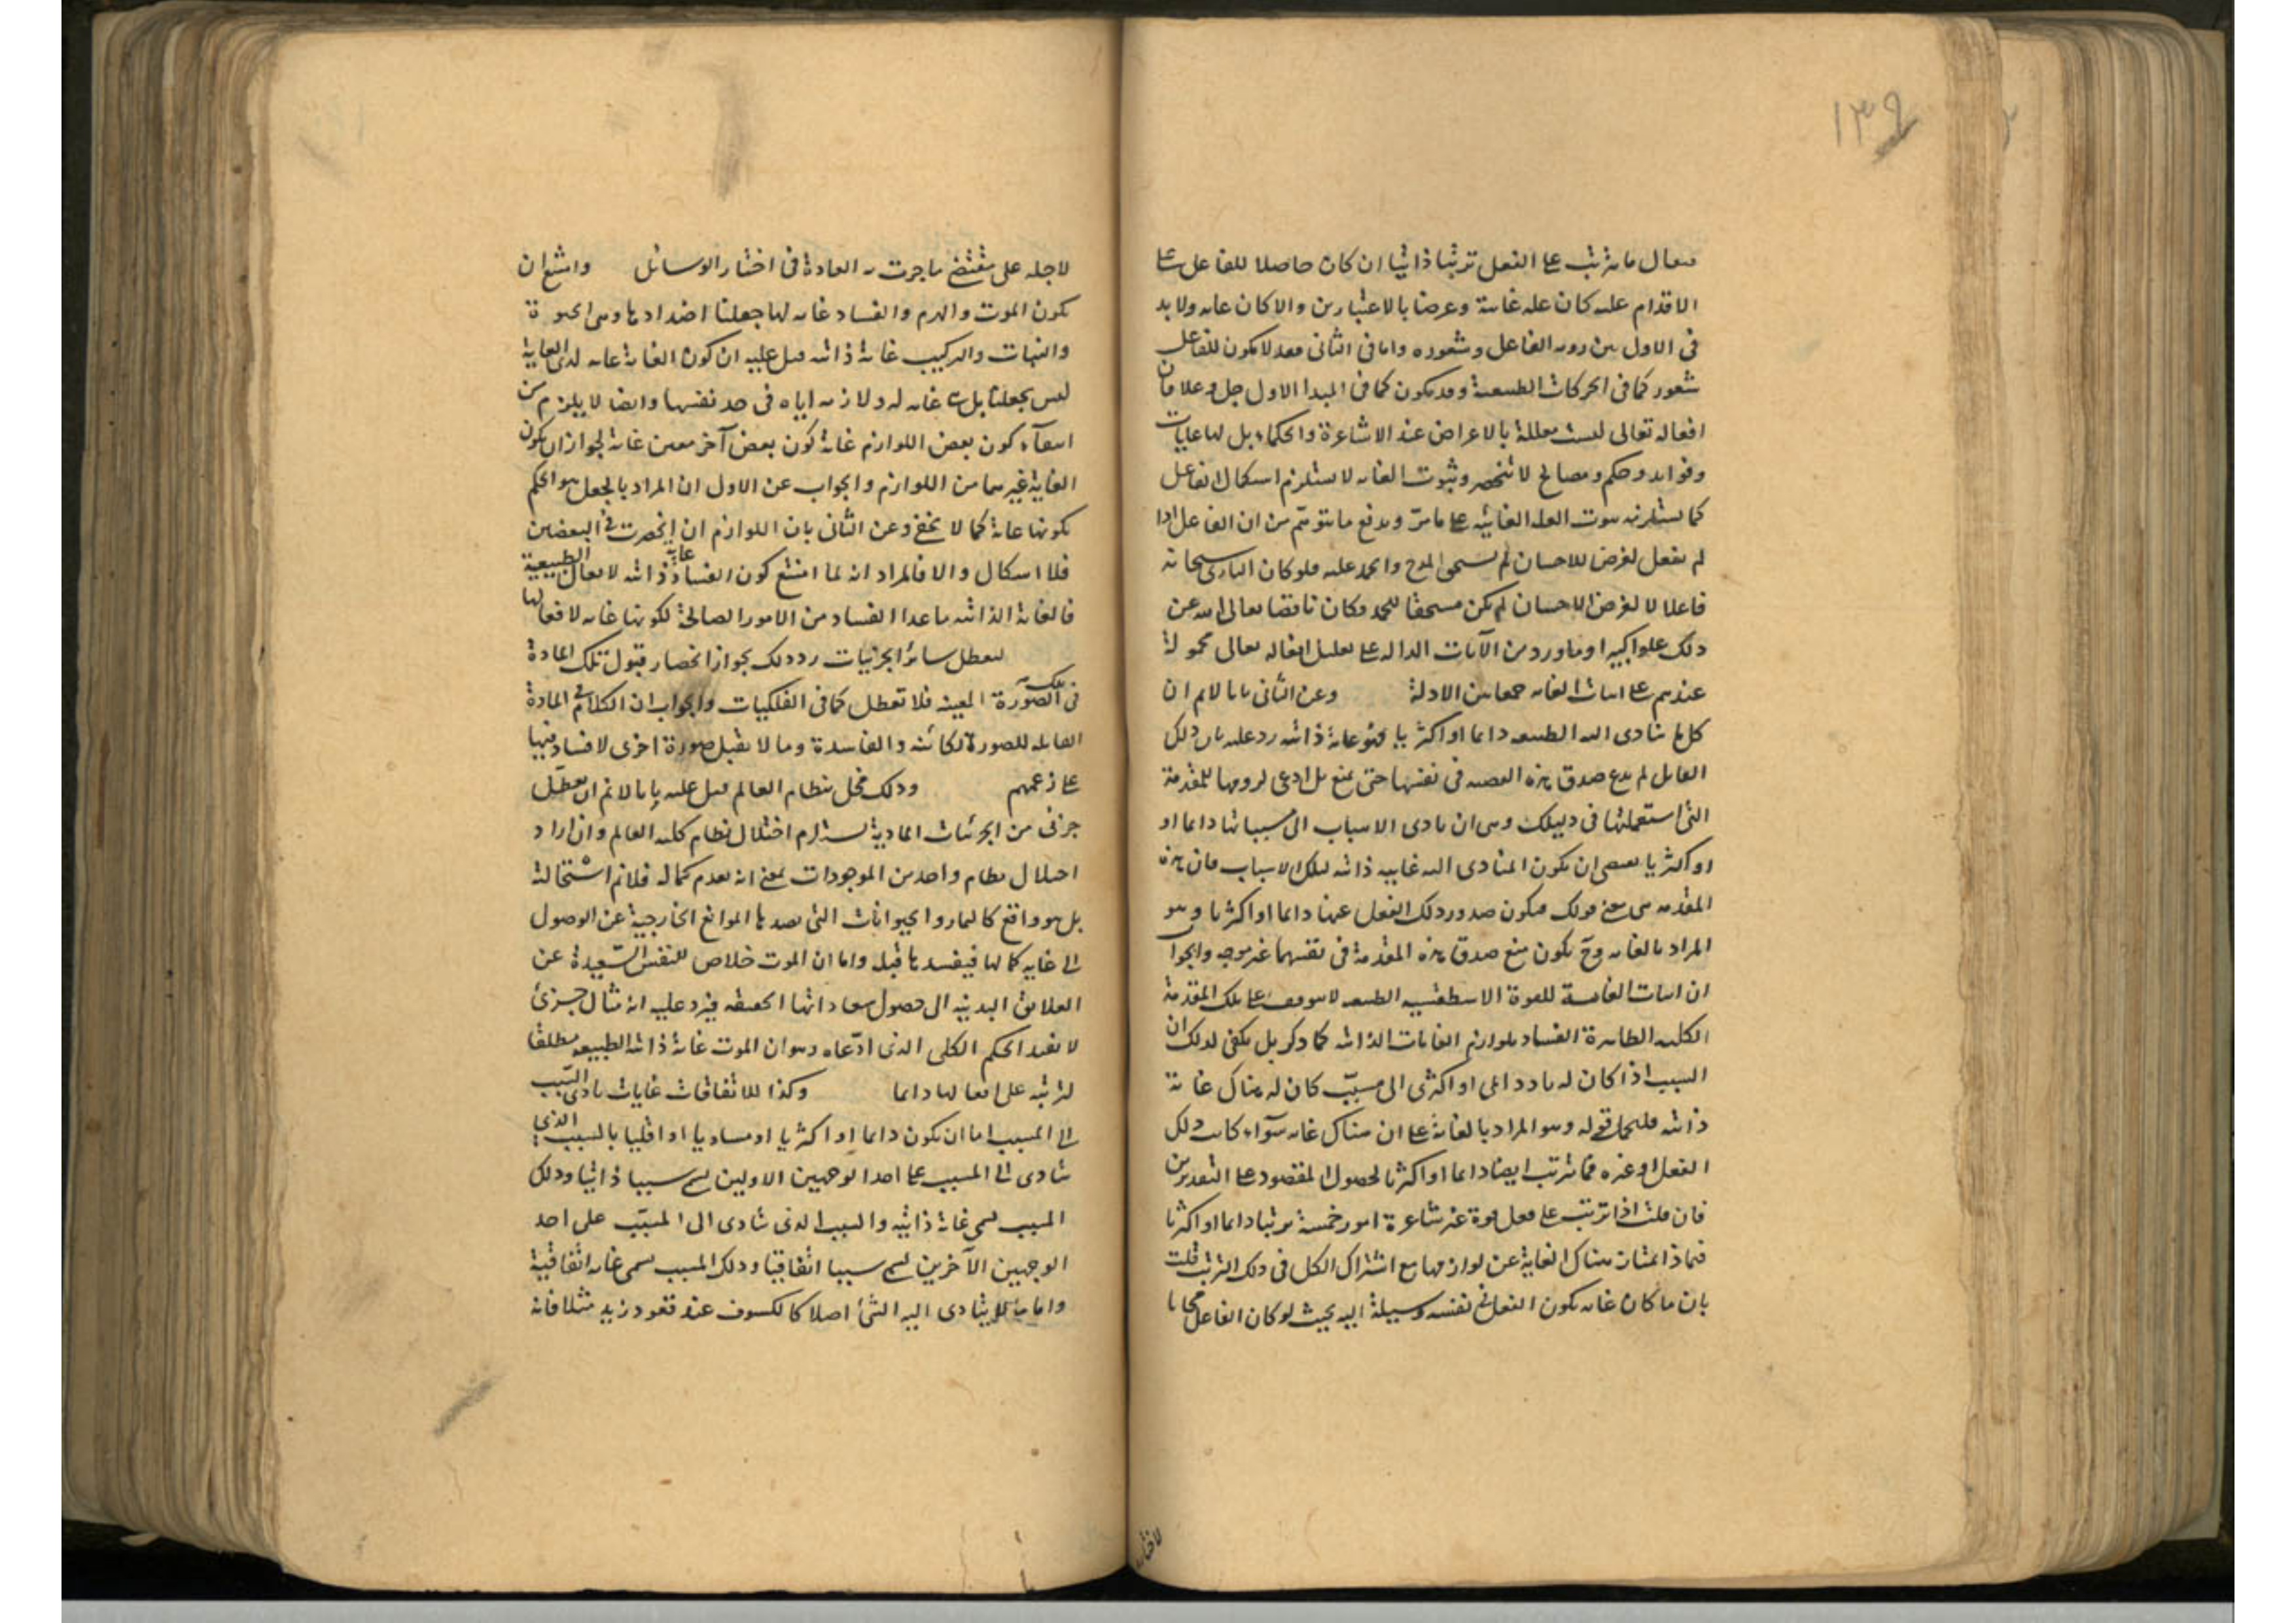 ١٣٩
يقال ما يترتب على الفعل ترتبا ذاتيا ان كان حاصلا للفاعل على
الاقدام عليه كان علة غائية وغرضا بالاعتبارين والا كان غاية ولا بد
في الاول من روية الفاعل وشعوره واما في الثاني فقد لا يكون للفاعل
شعور كما في الحركات الطبيعية وقد يكون كما في المبدا الاول جل وعلا فان
افعاله تعالى ليست معللة بالاغراض عند الاشاعرة والحكماء بل لها غايات
وفوايد وحكم ومصالح لا تنحصر وثبوت الغاية لا يستلزم استكمال الفاعل
كما يستلزمه ثبوت العلة الغائية على ما مر ويدفع ما يتوهم من ان الفاعل اذا
لم يفعل لغرض للاحسان لم يستحق المدح والحمد عليه فلو كان الباري سبحانه
فاعلا لا لغرض الاحسان لم يكن مستحقا للحمد وكان ناقصا تعالى الله عن
ذلك علوا كبيرا وما ورد من الآيات الدالة على تعليل افعاله تعالى محمولة
عندهم على اثبات الغاية جمعا بين الادلة وعن الثاني بانا لا نم ان
كل ما يتادى اليه الطبيعة دائما او اكثريا فهو غاية ذاتية رد عليه بان ذلك
القايل لم يدع صدق هذه القضية في نفسها حتى يمنع بل ادعى لزومها للمقدمة
التي استعملتها في دليلك وهي ان تادي الاسباب الى مسبباتها دائما او
او اكثريا يقتضي ان يكون المتادى اليه غايية ذاتية لتلك الاسباب فان هذه
المقدمة هي معنى قولك فيكون صدور ذلك الفعل عنها دائما او اكثريا وهو
المراد بالغاية وح يكون منع صدق هذه المقدمة في نفسها غير موجه والجوا
ان اثبات الغاية للقوة الاسطقسية الطبيعية لا يتوقف على تلك المقدمة
الكلية الظاهرة الفساد بلوازم الغايات الذاتية كما ذكر بل يكفي لذلك ان
السبب اذا كان له تاد دائمي او اكثري الى مسبب كان له هناك غاية
ذاتية فليحمل قوله وهو المراد بالغاية على ان هناك غاية سواء كانت ذلك
الفعل او غيره مما يترتب ايضا دائما او اكثريا لحصول المقصود على التقديرين
فان قلت اذا ترتب على فعل قوة غير شاعرة امور خمسة ترتبا دائما او اكثريا
فبماذا يمتاز هناك الغاية عن لوازمها مع اشتراك الكل في ذلك الترتب قلت
بان ما كان غاية يكون الفعل في نفسه وسيلة اليه بحيث لو كان الفاعل مختارا
لاختاره
لاجله على مقتضى ما جرت به العادة في اختيار الوسائل وامتنع ان
يكون الموت والهرم والفساد غاية لها جعلنا اضدادها وهي الحيوة
والنبات والتركيب غاية ذاتية قيل عليه ان كون الغاية غاية لذي الغاية
ليس بجعلنا بل هي غاية له ولازمة اياه في حد نفسها وايضا لا يلزم من
انتفاء كون بعض اللوازم غاية كون بعض آخر معين غاية لجواز ان يكون
الغاية غيرهما من اللوازم والجواب عن الاول ان المراد بالجعل هو الحكم
بكونها غاية كما لا يخفى وعن الثاني بان اللوازم ان انحصرت في البعضين
فلا اشكال والا فالمراد انه لما امتنع كون الفساد غاية ذاتية لافعال الطبيعية
فالغاية الذاتية ما عدا الفساد من الامور الصالحة لكونها غاية لافعالها
لتعطل سائر الجزئيات رد ذلك بجواز انحصار قبول تلك المادة
في تلك الصورة المعينة فلا تعطل كما في الفلكيات والجواب ان الكلام في المادة
القابلة للصورة الكائنة والفاسدة وما لا يقبل صورة اخرى لا فساد فيها
على زعمهم وذلك مخل بنظام العالم قيل عليه بانا لا نم ان تعطل
جزئي من الجزئيات المادية يستلزم اختلال نظام كلية العالم وان اراد
اختلال نظام واحد من الموجودات بمعنى انه يعدم كماله فلا نم استحالته
بل هو واقع كالثمار والحيوانات التي تصدها الموانع الخارجية عن الوصول
الى غاية كمالها فيفسدها قبله واما ان الموت خلاص للنفس السعيدة عن
العلايق البدنية الى حصول سعاداتها الحقيقية فيرد عليه انه مثال جزئي
لا يفيد الحكم الكلي الذي ادعاه وهو ان الموت غاية ذاتية الطبيعة مطلقا
لترتبه على افعالها دائما وكذا للاتفاقات غايات تادي السبب
الى المسبب اما ان يكون دائما او اكثريا او مساويا او اقليا بالسبب الذي
يتادى الى المسبب على احد الوجهين الاولين يسمى سببا ذاتيا وذلك
المسبب يسمى غاية ذاتية والسبب الذي يتادى الى المسبب على احد
الوجهين الآخرين يسمى سببا اتفاقيا وذلك المسبب يسمى غاية اتفاقية
واما ما لا يتادى اليه الشئ اصلا كالكسوف عند قعود زيد مثلا فانه